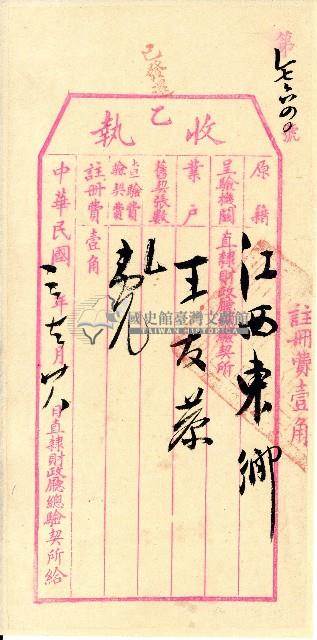 已發還
第 號
收乙執
原籍 江西東鄉
呈驗機關 直隸財政廳驗契所
業戶 王友
舊契張數
驗契費
註冊費壹角
中華民國三年七月廿八日直隸財政廳總驗契所給
註冊費壹角
國史館臺灣文獻館
TAIWAN HISTORICA